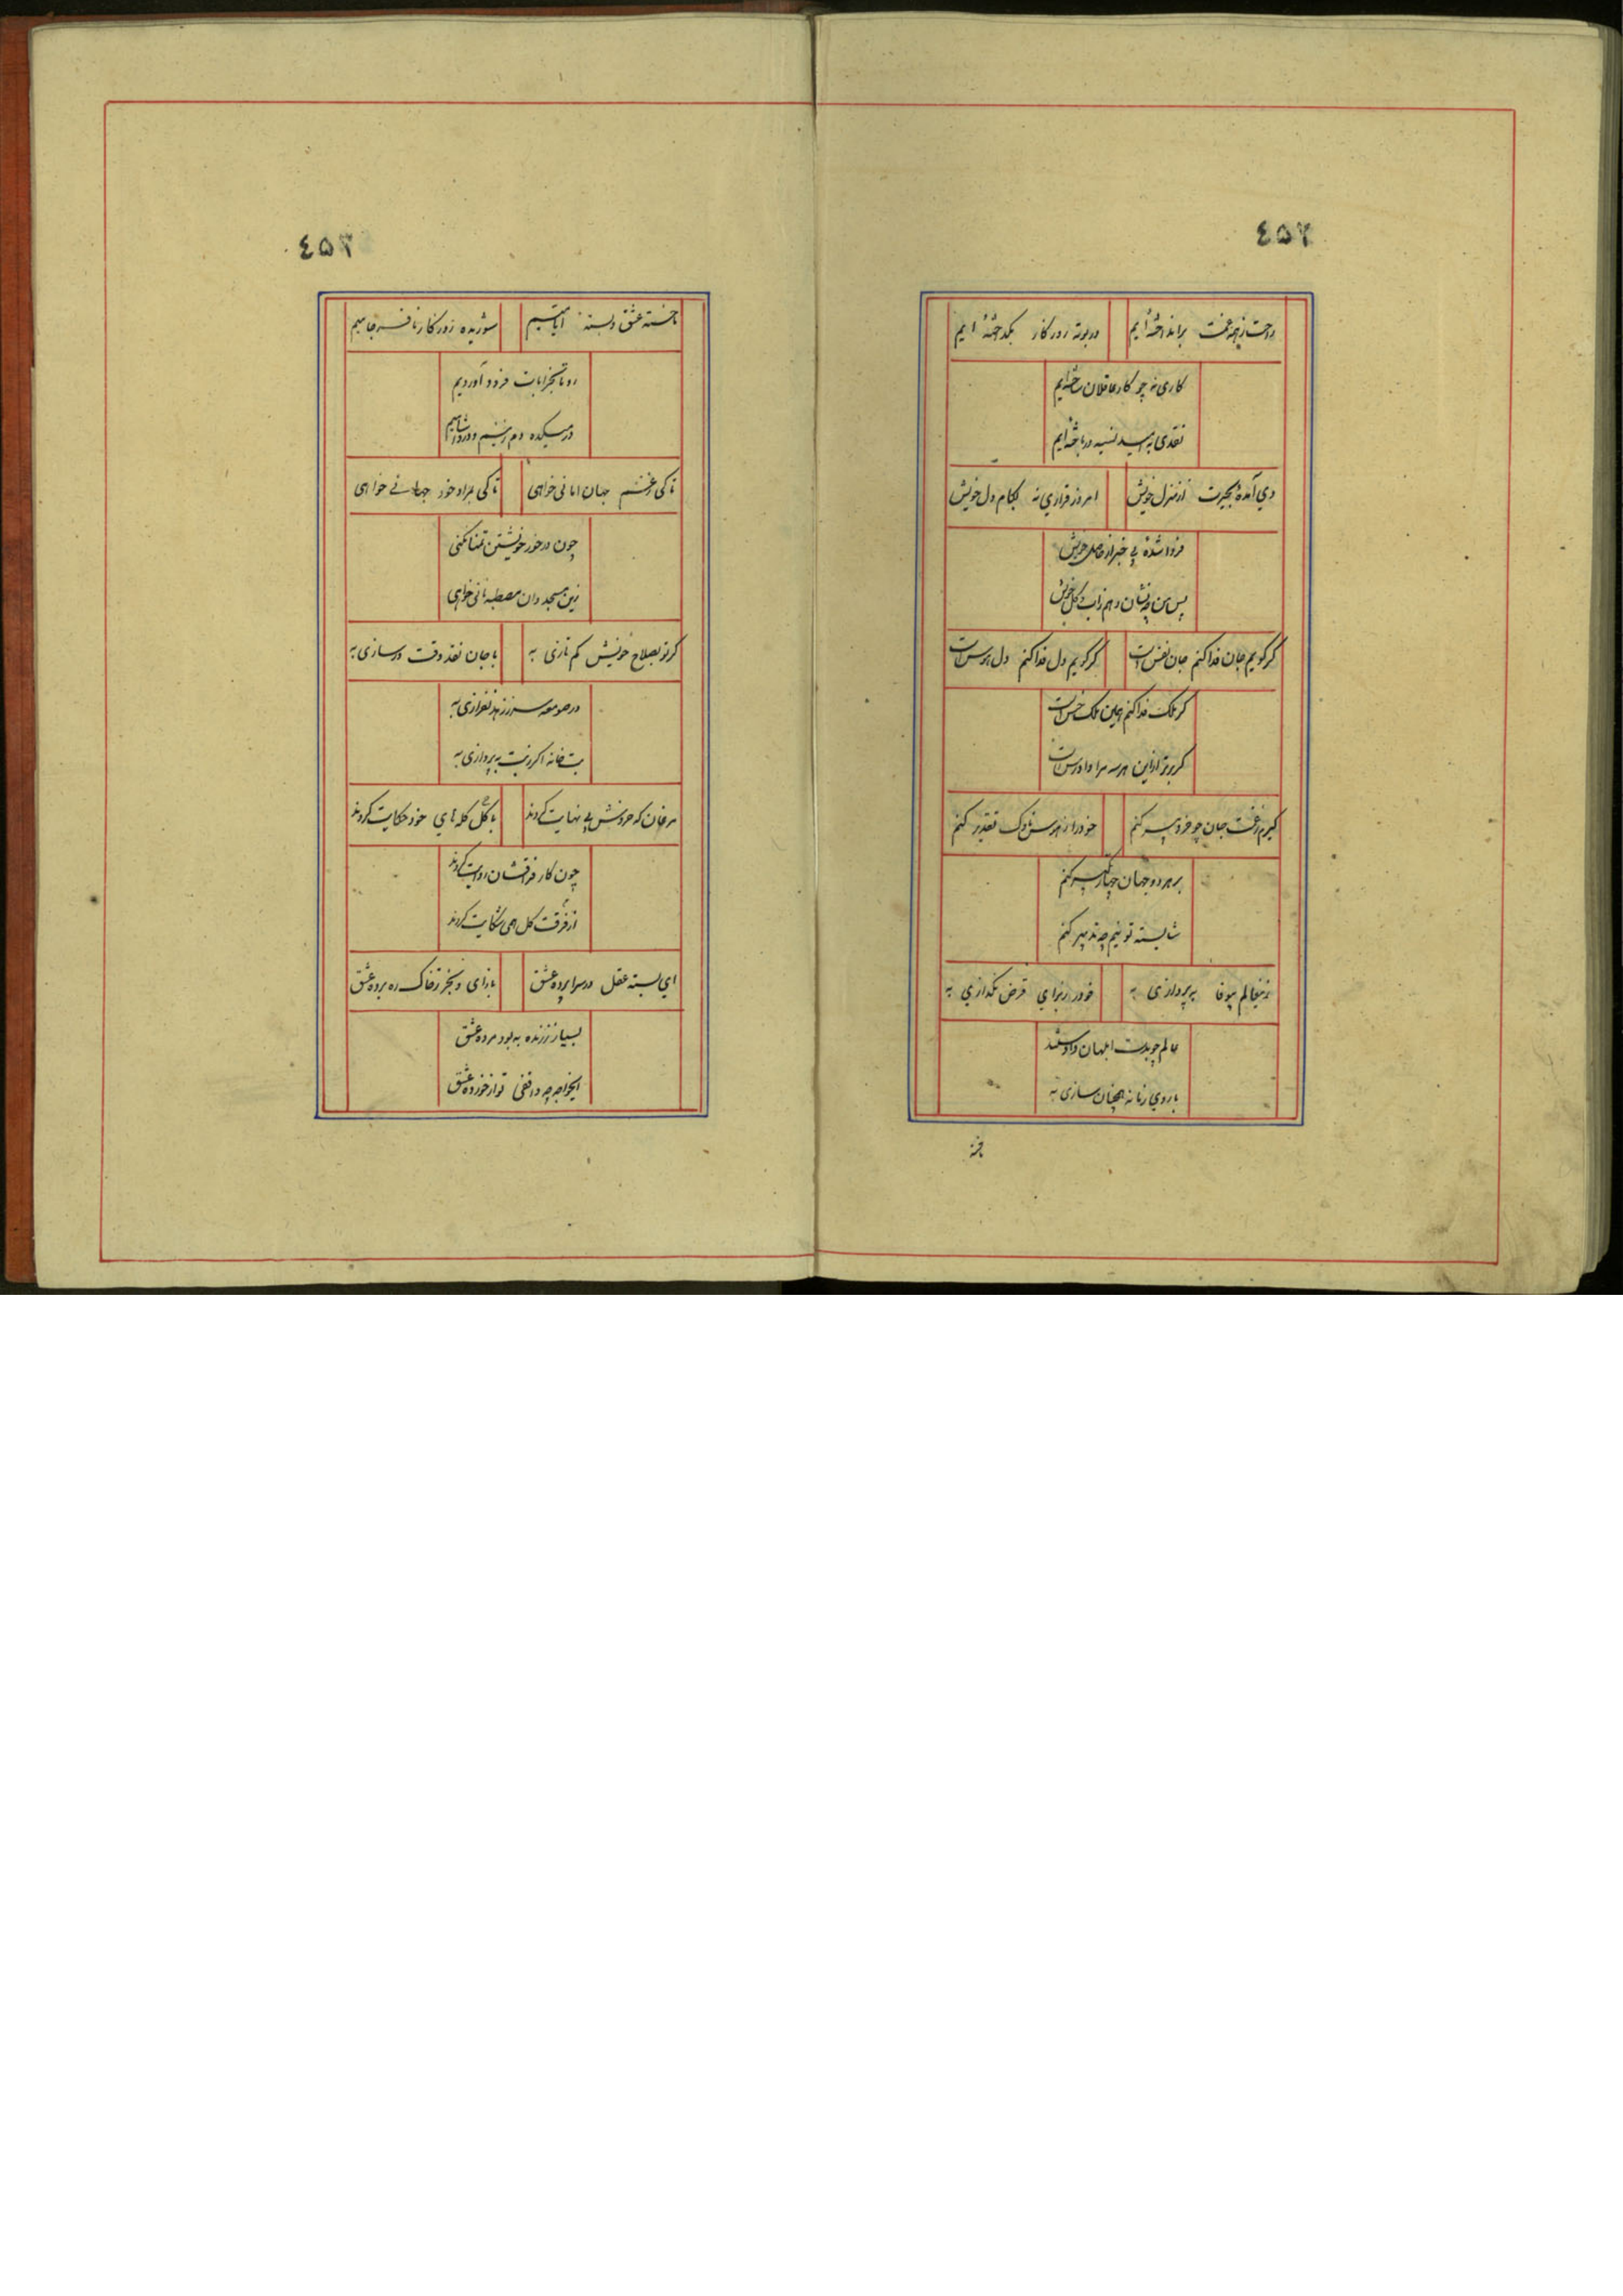 ٤٥٣
راحت ز همه برانداخته ایم
در بوته روزکار بکداخته ایم
کاری نه چو کار عاقلان ساخته ایم
نقدی به امید نسیه درباخته ایم
دی آمدهٔ بحیرت از منزل خویش
امروز قراری نه بکام دل خویش
فردا شده بی خبر از حاصل خویش
پس من چه نشان دهم ز آب و کل خویش
کر کویم جان فدا کنم جان نفس است
کر کویم دل فدا کنم دل هوس است
کر ملک فدا کنم همین ملک خس است
کر برتر ازین هر سه مرا دادرس است
کیرم ز غمت جان چو فرو پیر کنم
خود را ز هوس ناوک تقدیر کنم
بر هر دو جهان چهار تکبیر کنم
شایسته تو نیم چه تدبیر کنم
زین عالم بیوفا بپردازی به
خود را ز برای قرض نکدازی به
عالم چو بدست ابلهان دادستند
با روی زمانه همچنان سازی به
٤٥٤
ما خسته عشق و بستهٔ ایامیم
شوریده روزکار نافرجامیم
رو تا بخرابات فرود آوردیم
در میکده دم زنیم و درد آشامیم
تا کی ز غم جهان امانی خواهی
تا کی بمراد خود جهانی خواهی
چون در خور خویشتن تمنا نکنی
زین مسجد و آن مصطبه نانی خواهی
کر تو بصلاح خویش کم نازی به
با جان نقد وقت درسازی به
در صومعه سر ز زهد نفرازی به
بت خانه اکر ز بت بپردازی به
مرغان که خروش بی نهایت کردند
با کل کله های خود حکایت کردند
چون کار فراقشان روایت کردند
از فرقت کل همی شکایت کردند
ای بسته عقل در سراپرده عشق
باز آی و بخر خاک ره برده عشق
بسیار ز زنده به بود مرده عشق
ایخواجه چه واقفی تو از خورده عشق